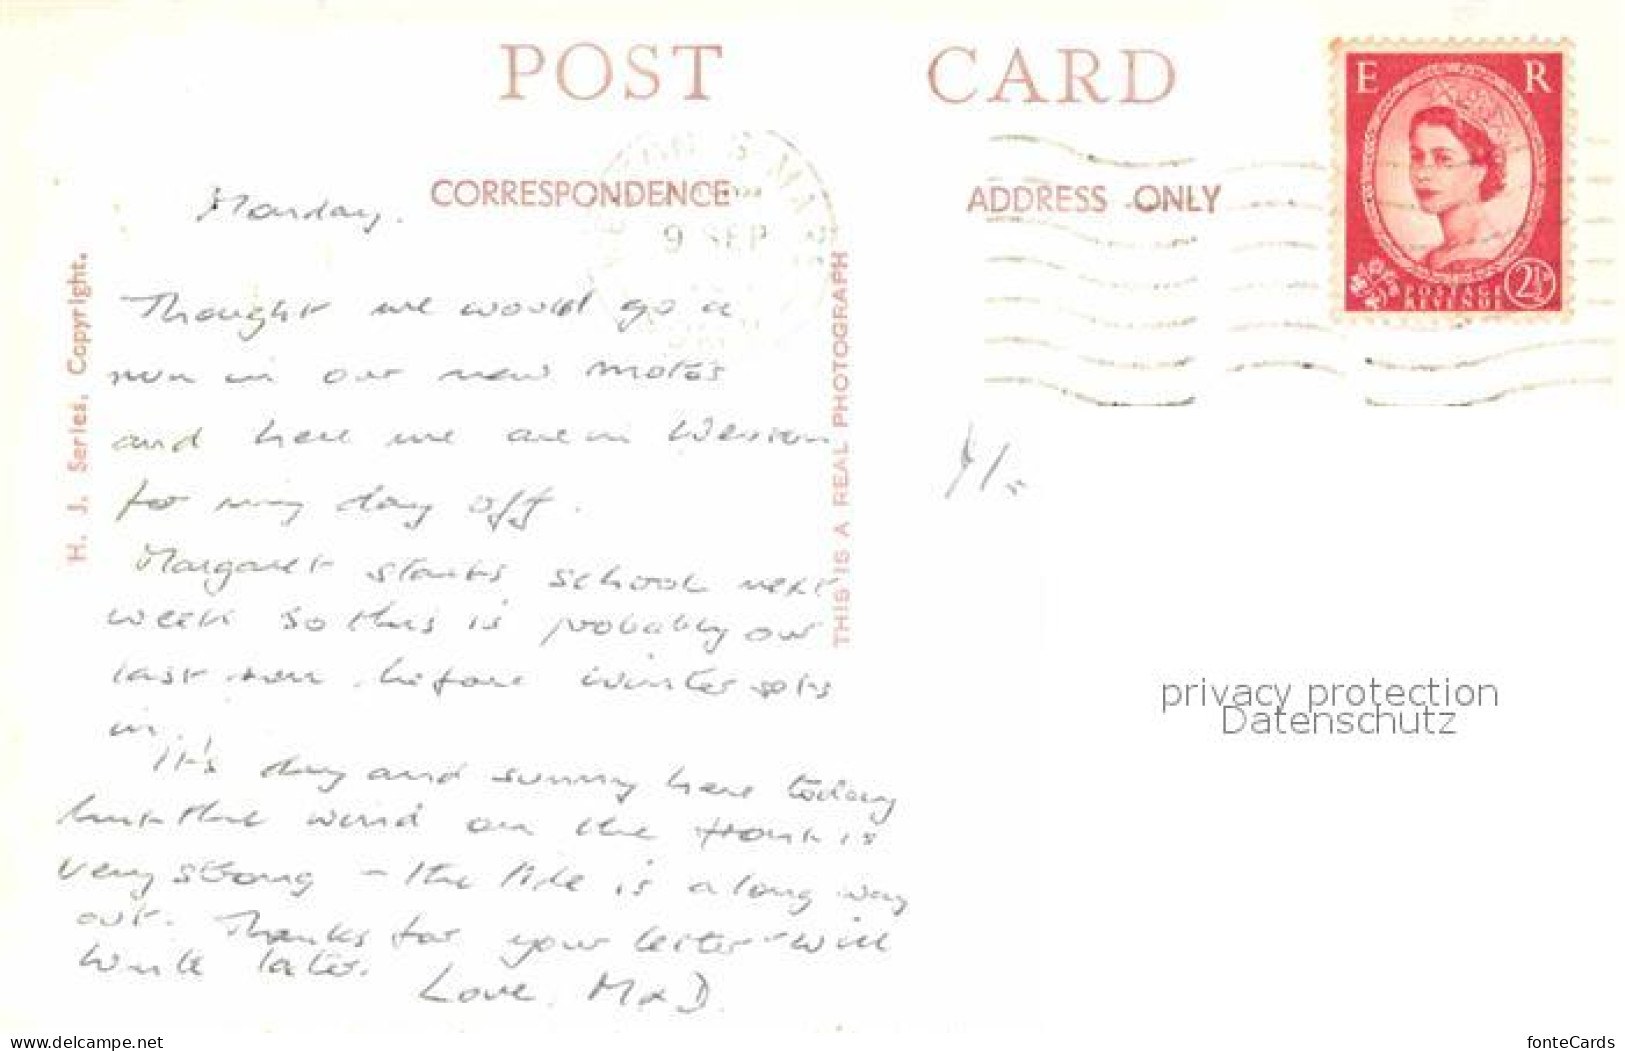 POST CARD
CORRESPONDENCE
ADDRESS ONLY
E R
POSTAGE
REVENUE
2½
9 SEP
H. J. Series. Copyright.
THIS IS A REAL PHOTOGRAPH
Monday.
Thought we would go a
run in our new motor
and here we are in Weston
for my day off.
Margaret starts school next
week so this is probably our
last run before winter sets
in.
It's dry and sunny here today
but the wind on the front is
very strong - the tide is a long way
out. Thanks for your letter - will
write later.
Love, M & D.
privacy protection
Datenschutz
www.delcampe.net
fonteCards